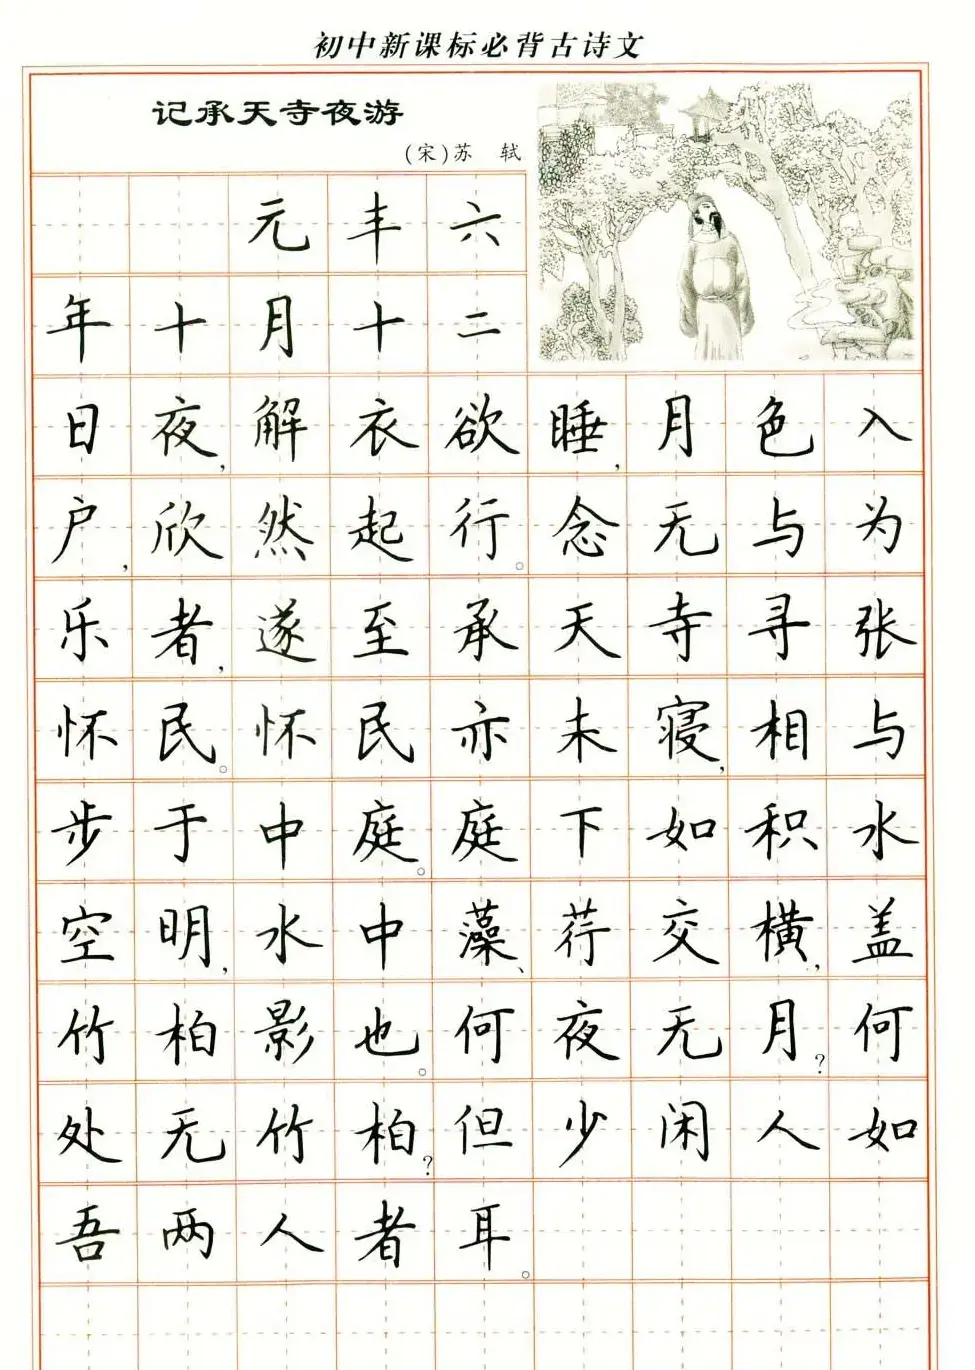 初中新课标必背古诗文
记承天寺夜游
(宋)苏 轼
元丰六
年十月十二
日夜,解衣欲睡,月色入
户,欣然起行。念无与为
乐者,遂至承天寺寻张
怀民。怀民亦未寝,相与
步于中庭。庭下如积水
空明,水中藻、荇交横,盖
竹柏影也。何夜无月?何
处无竹柏?但少闲人如
吾两人者耳。